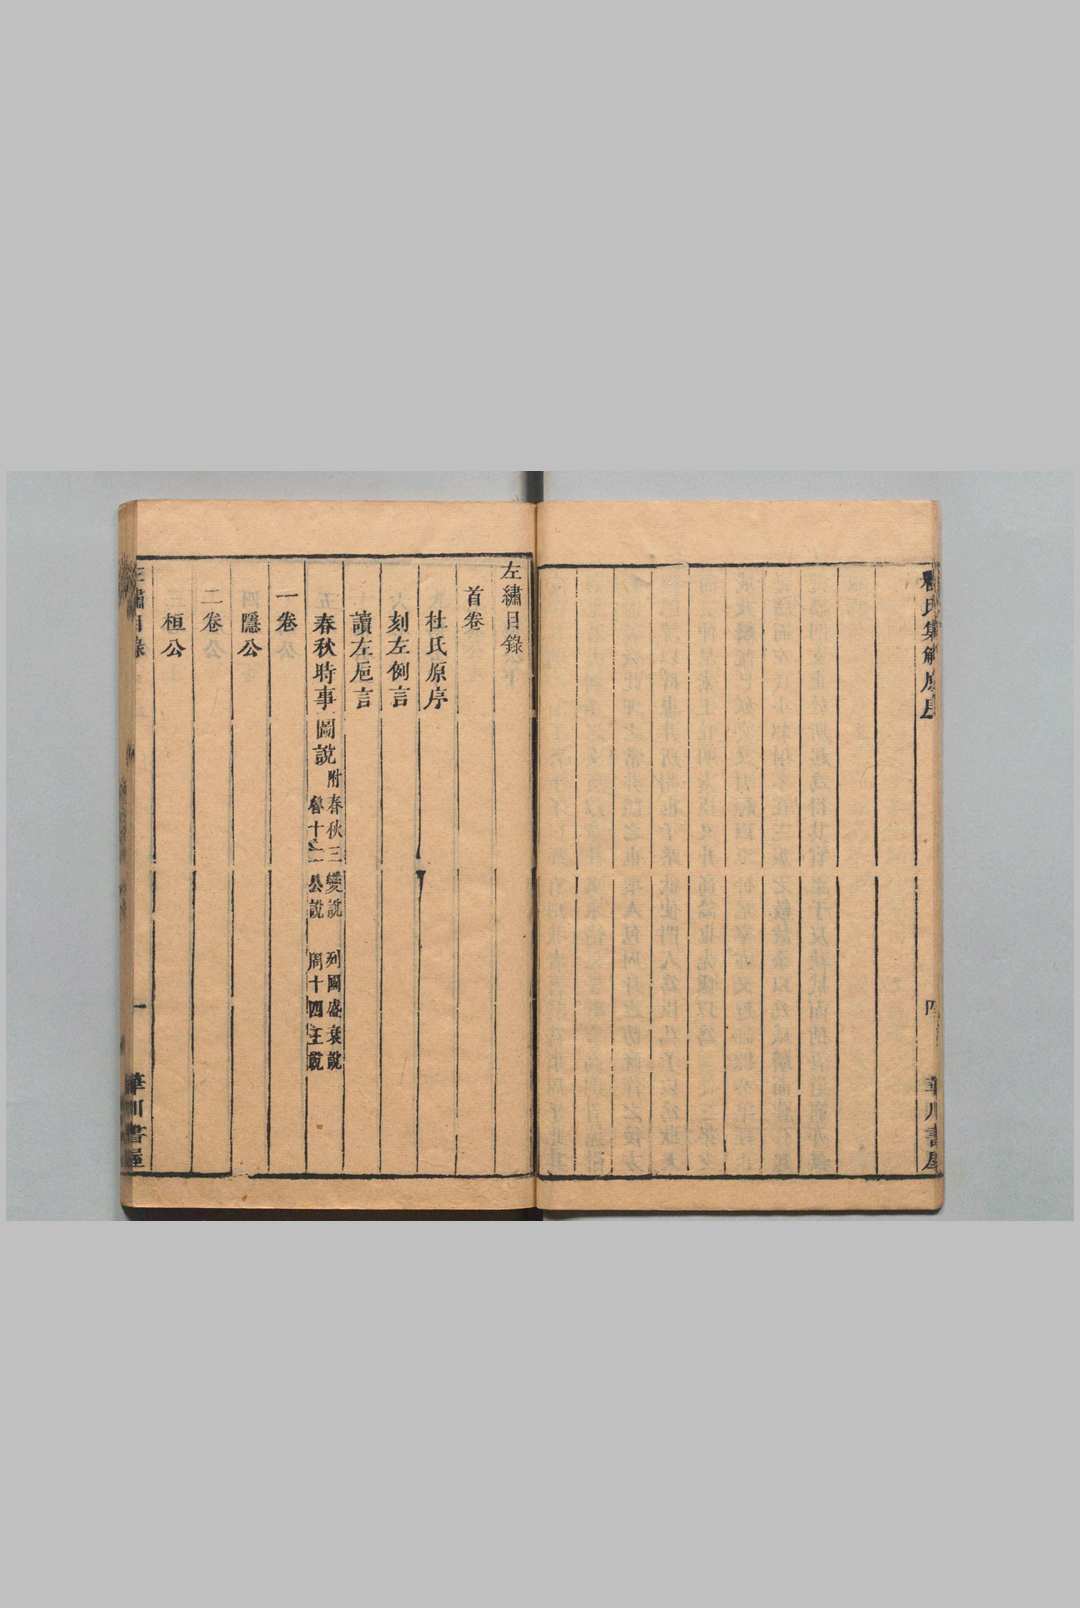 杜氏集解原序
四
華川書屋
左繡目錄
首卷
杜氏原序
刻左例言
讀左巵言
春秋時事圖說
附春秋三變說 列國盛衰說
魯十二公說 周十四王說
一卷
隱公
二卷
桓公
左繡目錄
一
華川書屋